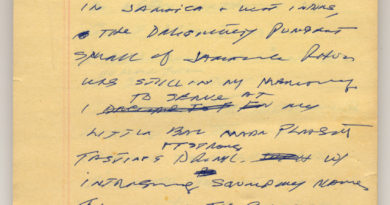 in Jamaica & West Indies
& the Delightfully Pungent
Smell of Jamaica Rum
was still in my memory
to serve at
I my
Little Bar many Pleasant
& strong
Tasting Drinks w/
intriguing sounding names